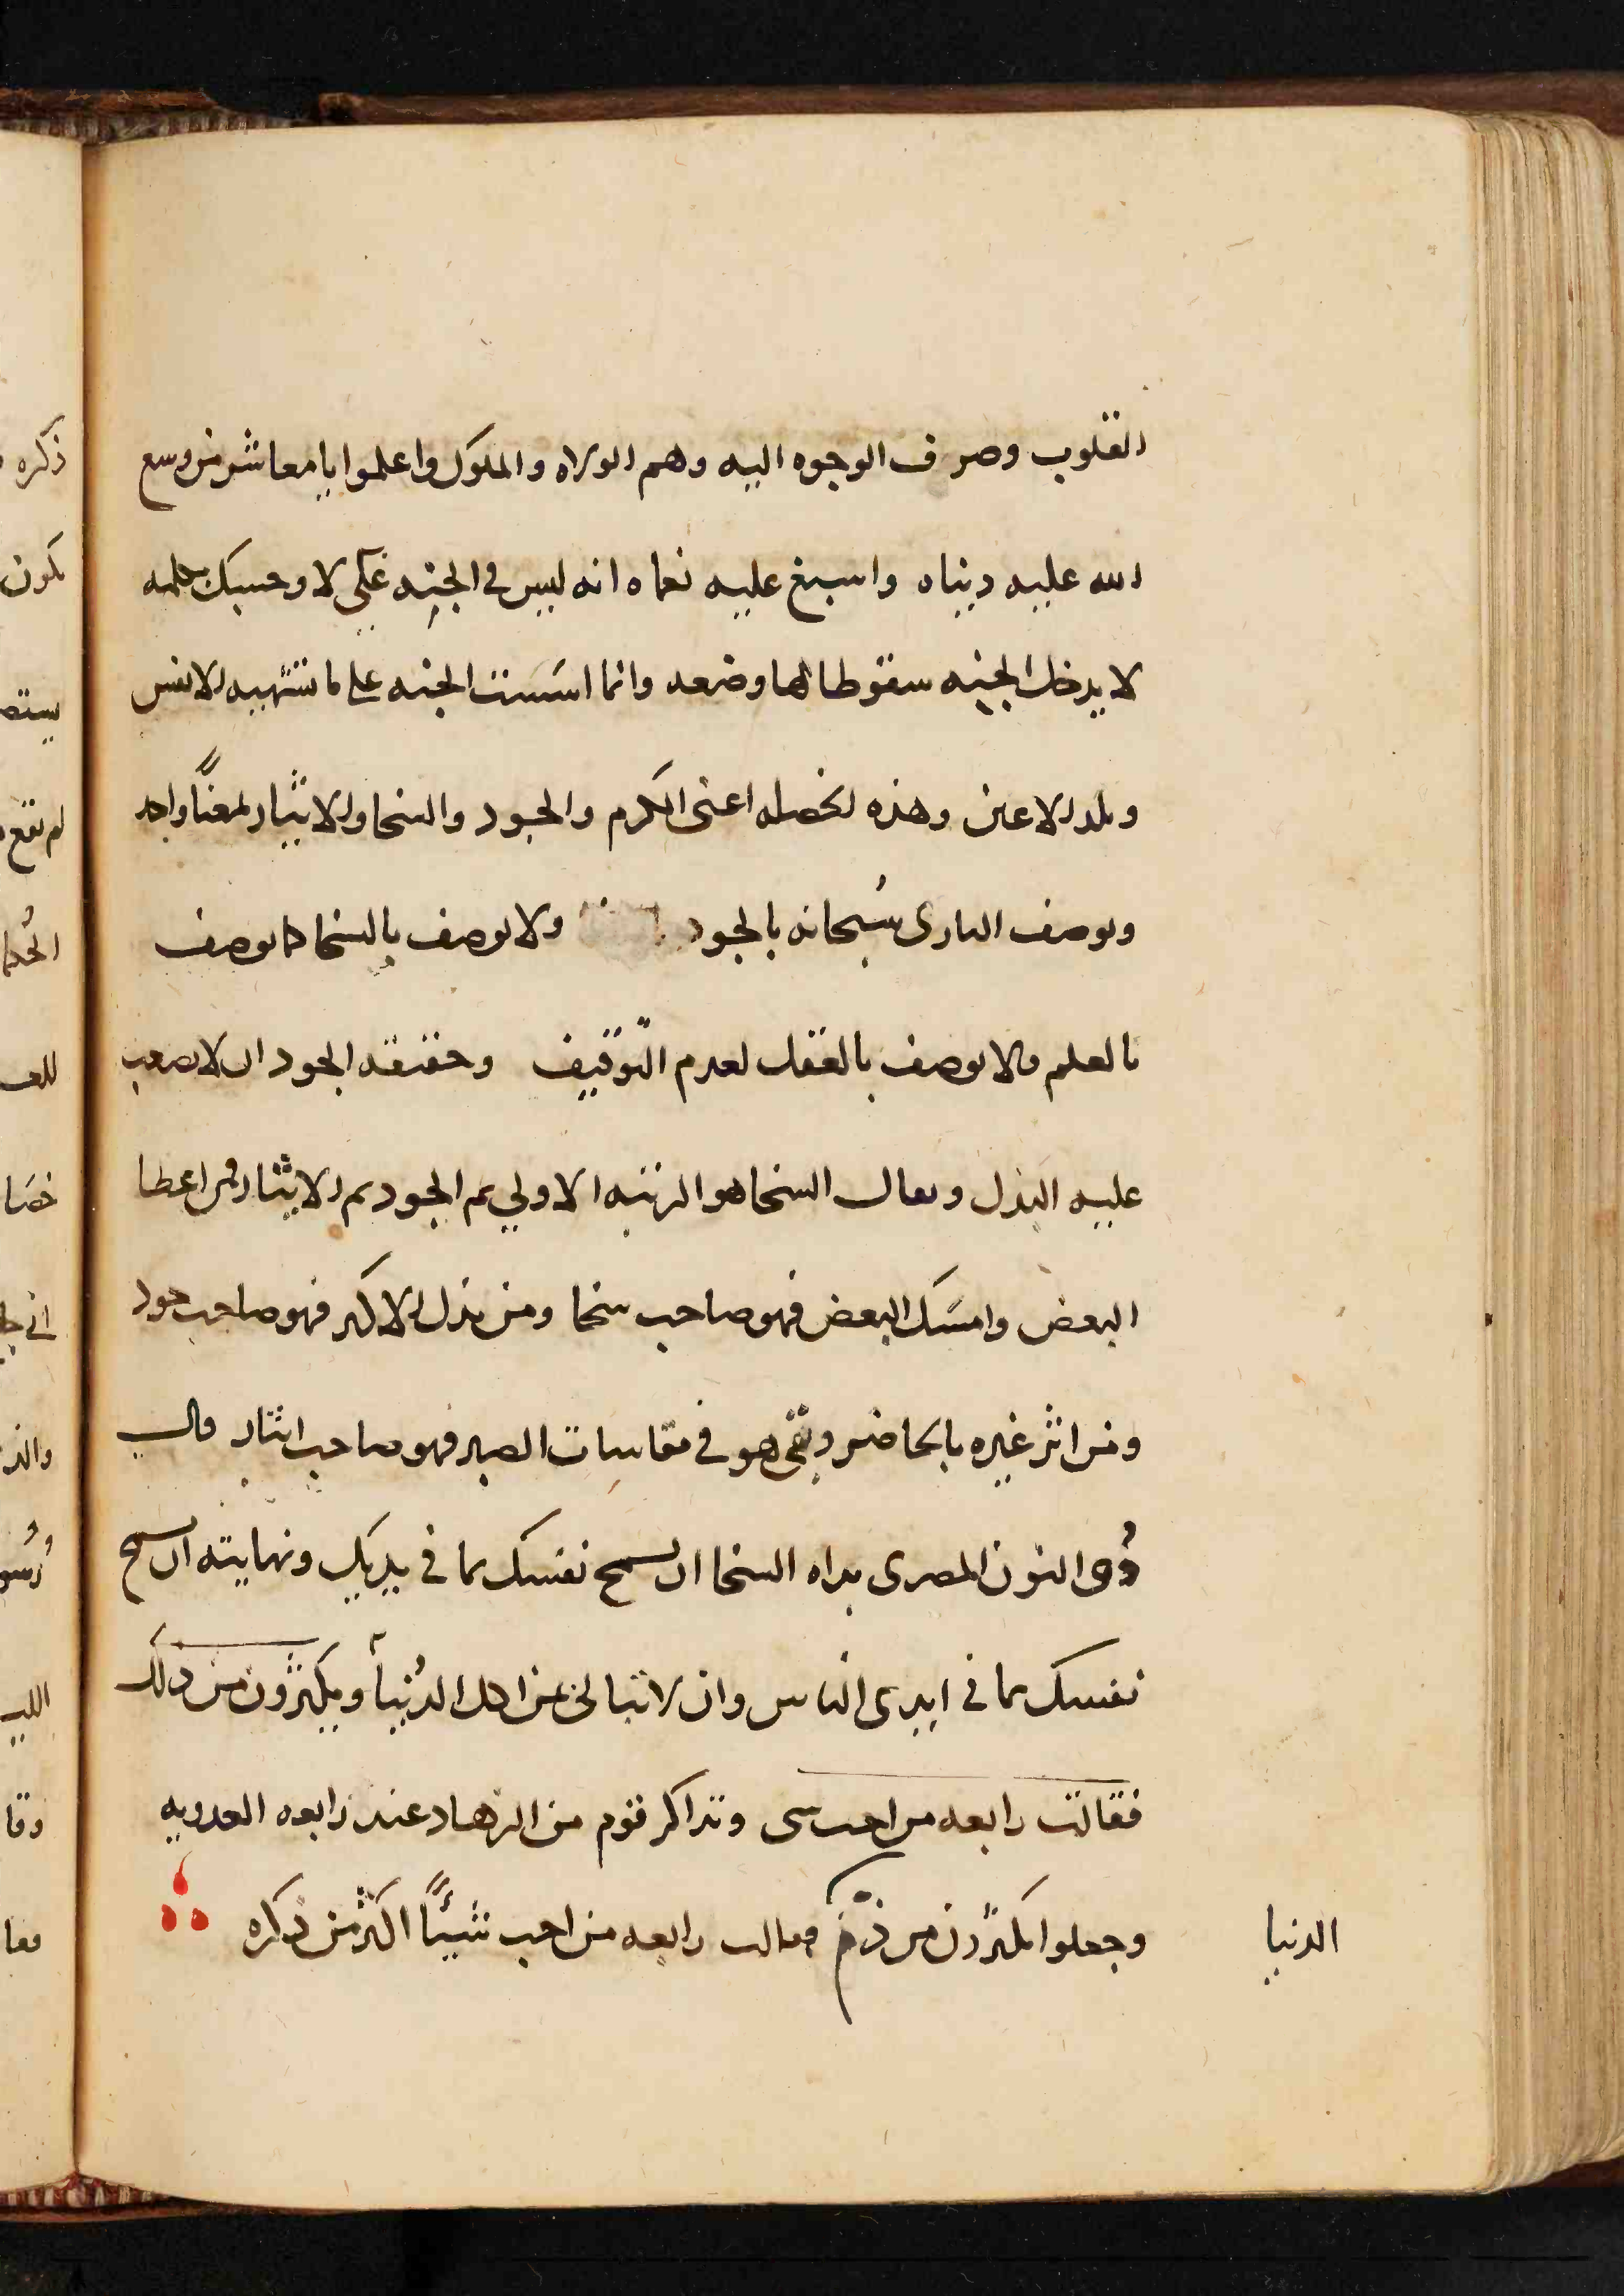 القلوب وصرف الوجوه اليه وهم الوزراه والملوك واعلموا يا معاشر من وسع
الله عليه دنياه واسبغ عليه نعماه انه ليس في الجنه لا وحسبك بكلمه
لا يدخل الجنه سقوطا لها وضعه وانما اسست الجنه على ما تشتهيه الانفس
وتلد الاعين وهذه الخصله اعنى الكرم والجود والسخا والايثار لمعنًا واحد
ويوصف البارى سُبحانه بالجود ولا يوصف بالسخا كما يوصف
بالعلم ولا يوصف بالعقل لعدم التّوقيف وحقيقه الجود ان لا يصعب
عليه البذل ويقال السخا هو الرتبه الاولي ثم الجود ثم الايثار فمن اعطا
البعض وامسك البعض فهو صاحب سخا ومن بذل الاكثر فهو صاحب جود
ومن اثر غيره بالحاضر وبقى هو في مقاسات الصبر فهو صاحب ايثار قال
ذُو النون المصرى بداه السخا ان تسمح نفسك بما في يديك ونهايته ان تسمح
نفسك بما في ايدى الناس وان لا تبالى من اهل الدُنيا ويكثرون من ذلك
فقالت رابعه من احب شى وتذاكر قوم من الزهاد عند رابعه العدويه
وجعلوا يكثرون من ذمّ فقالت رابعه من احب شيئًا اكثر من ذكره
الدنيا